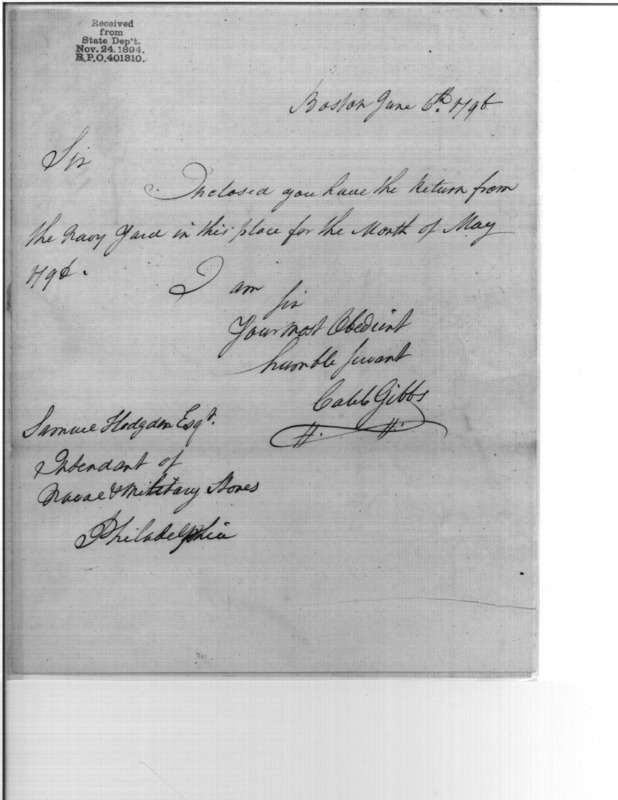 Received
from
State Dep't.
Nov. 24. 1894.
R.P.O. 401310.
Boston June 6th. 1796
Sir
Inclosed you have the Return from
the Navy Yard in this place for the Month of May
1796.
I am
Sir
Your most Obedient
humble Servant
Caleb Gibbs
Samuel Hodgdon Esqr.
Intendant of
Naval & Military Stores
Philadelphia